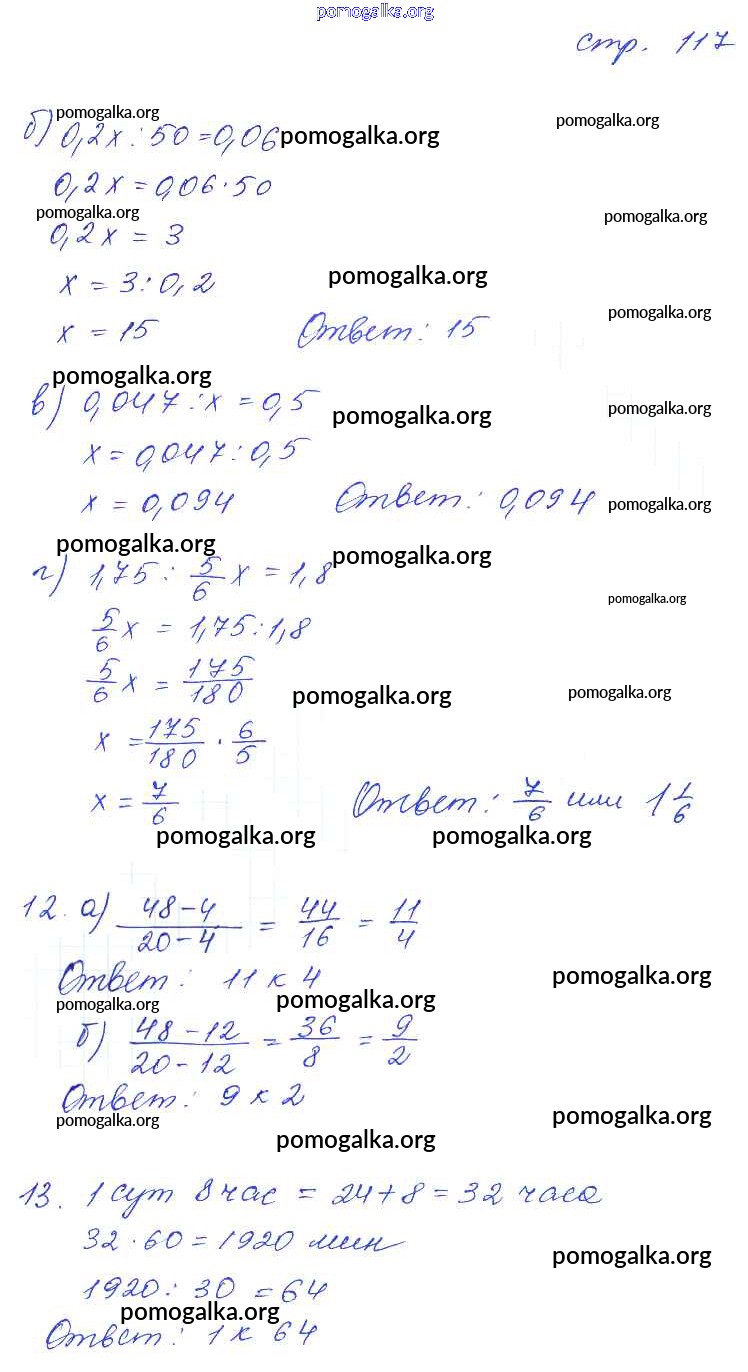 pomogalka.org
стр. 117
pomogalka.org
pomogalka.org
б) 0,2x : 50 = 0,06 pomogalka.org
0,2x = 0,06 · 50
pomogalka.org
pomogalka.org
0,2x = 3
x = 3 : 0,2 pomogalka.org
pomogalka.org
x = 15 Ответ: 15
pomogalka.org
в) 0,047 : x = 0,5 pomogalka.org
pomogalka.org
x = 0,047 : 0,5
x = 0,094 Ответ: 0,094 pomogalka.org
pomogalka.org
pomogalka.org
г) 1,75 : 5/6 x = 1,8
pomogalka.org
5/6 x = 1,75 : 1,8
5/6 x = 175/180
pomogalka.org
pomogalka.org
x = 175/180 · 6/5
x = 7/6 Ответ: 7/6 или 1 1/6
pomogalka.org
pomogalka.org
12. а) 48-4/20-4 = 44/16 = 11/4
Ответ: 11 к 4 pomogalka.org
pomogalka.org
pomogalka.org
б) 48-12/20-12 = 36/8 = 9/2
Ответ: 9 к 2
pomogalka.org
pomogalka.org
pomogalka.org
13. 1 сут 8 час = 24+8 = 32 часа
32 · 60 = 1920 мин
pomogalka.org
1920 : 30 = 64
pomogalka.org
Ответ: 1 к 64